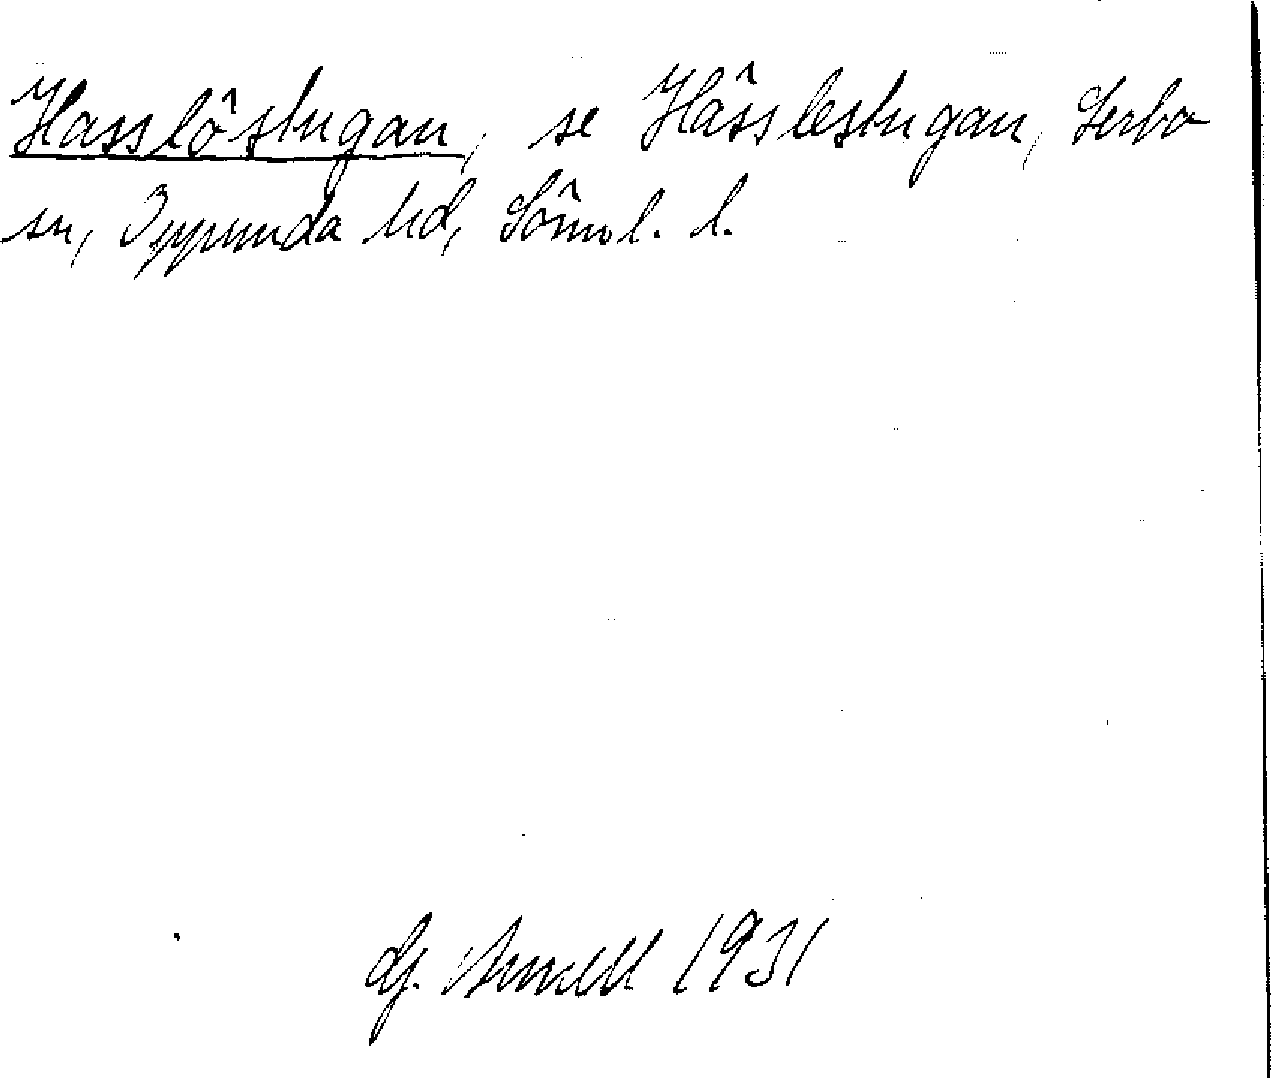 Hasslöstugan, se Hässlestugan, Lerbo
sn, Oppunda hd, Söml. l.
G. Arnell 1931